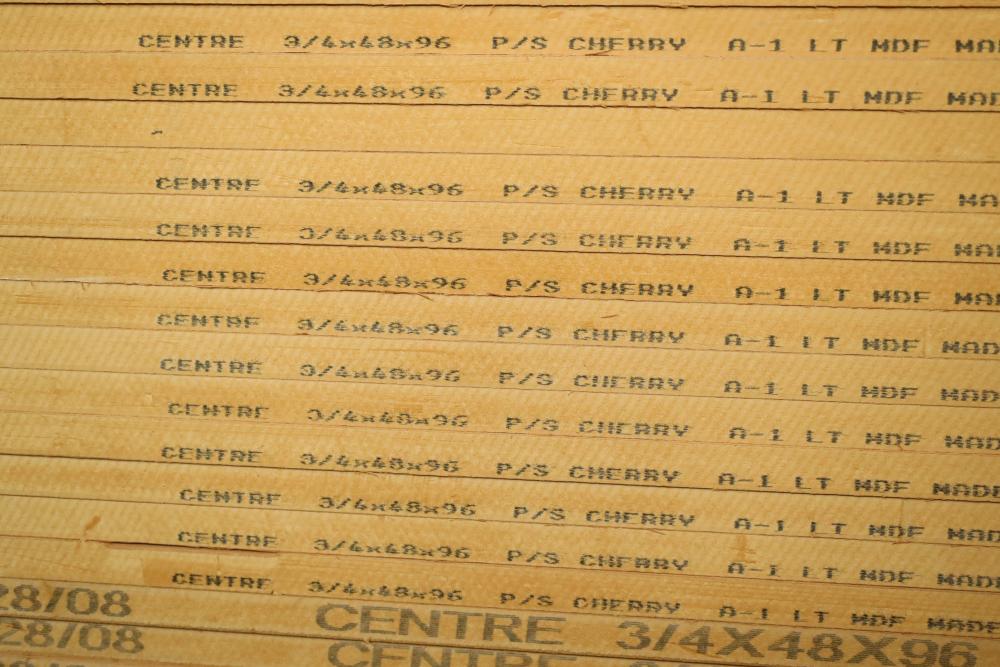 CENTRE 3/4x48x96 P/S CHERRY A-1 LT MDF MA
CENTRE 3/4x48x96 P/S CHERRY A-1 LT MDF MAD
CENTRE 3/4x48x96 P/S CHERRY A-1 LT MDF MA
CENTRE 3/4x48x96 P/S CHERRY A-1 LT MDF MA
CENTRE 3/4x48x96 P/S CHERRY A-1 LT MDF MA
CENTRE 3/4x48x96 P/S CHERRY A-1 LT MDF MAD
CENTRE 3/4x48x96 P/S CHERRY A-1 LT MDF MAD
CENTRE 3/4x48x96 P/S CHERRY A-1 LT MDF MAD
CENTRE 3/4x48x96 P/S CHERRY A-1 LT MDF MADE
CENTRE 3/4x48x96 P/S CHERRY A-1 LT MDF MAD
CENTRE 3/4x48x96 P/S CHERRY A-1 LT MDF MADE
CENTRE 3/4x48x96 P/S CHERRY A-1 LT MDF MADE
28/08 CENTRE 3/4X48X96
28/08 CENTRE